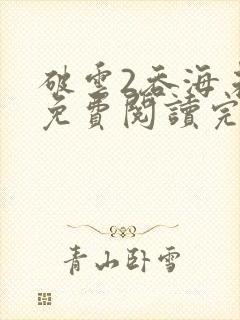 破雲2吞海
免費閱讀完
青山卧雪